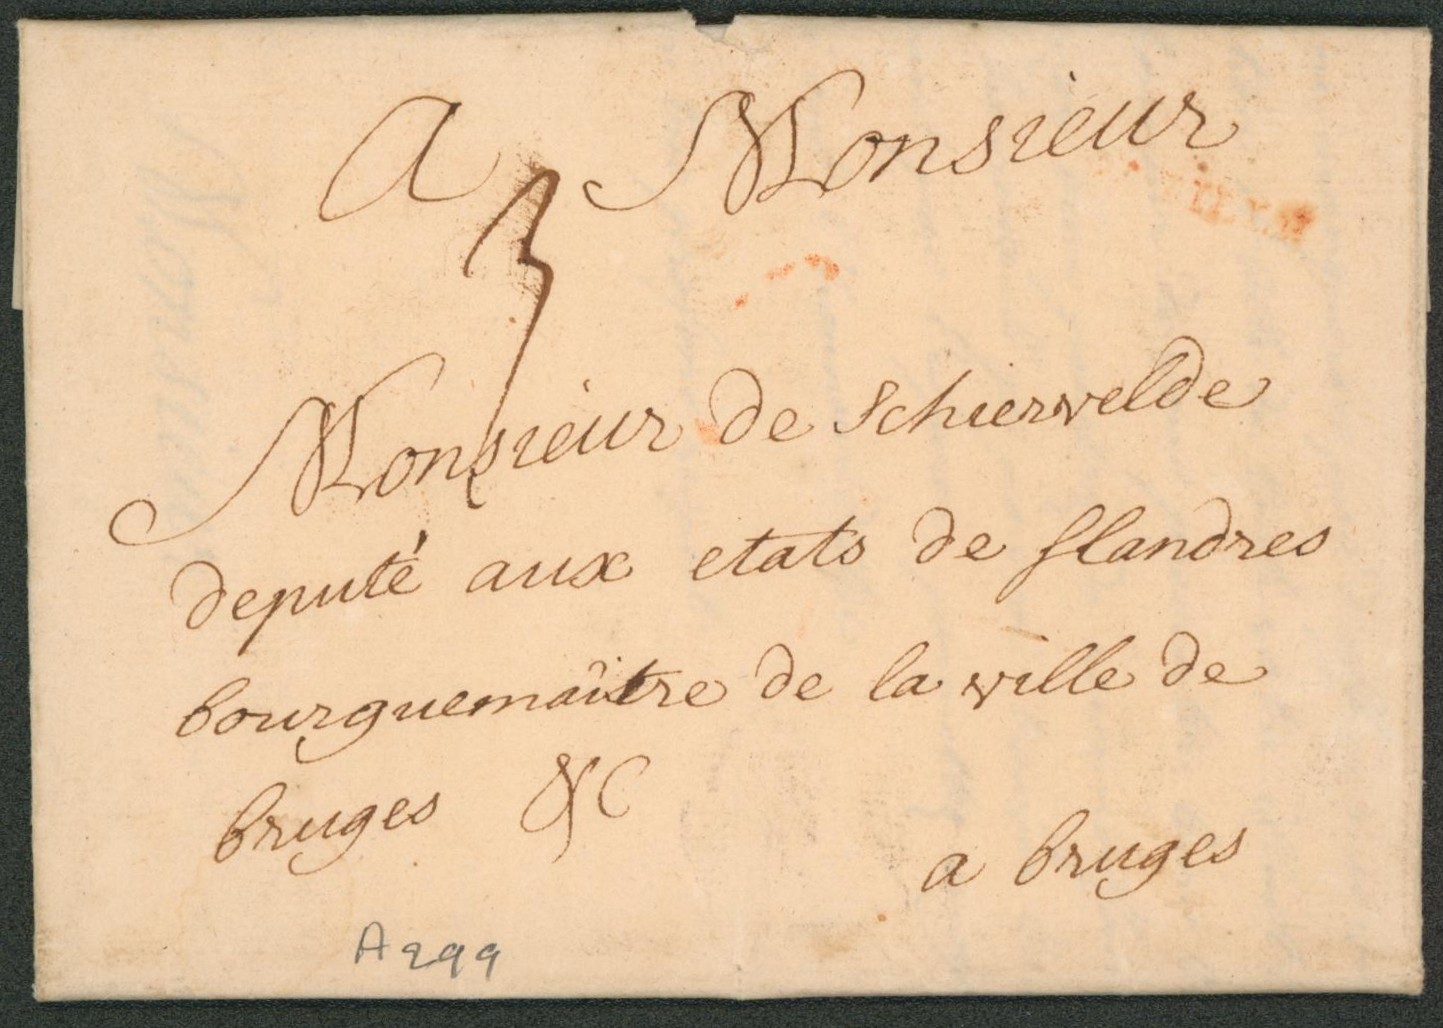 a Monsieur
3
Monsieur de Schiervelde
deputé aux etats de flandres
bourguemaitre de la ville de
bruges &c
a bruges
A299